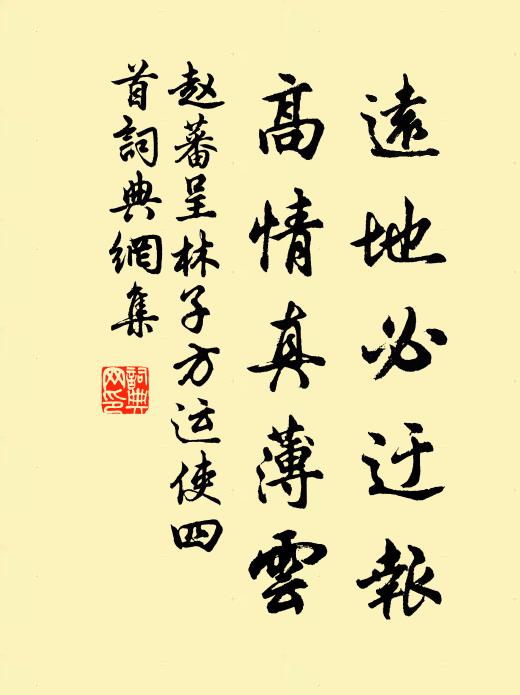 遠地必迂報
高情真薄雲
赵蕃呈林子方运使四
首詞典網集
詞典
网印